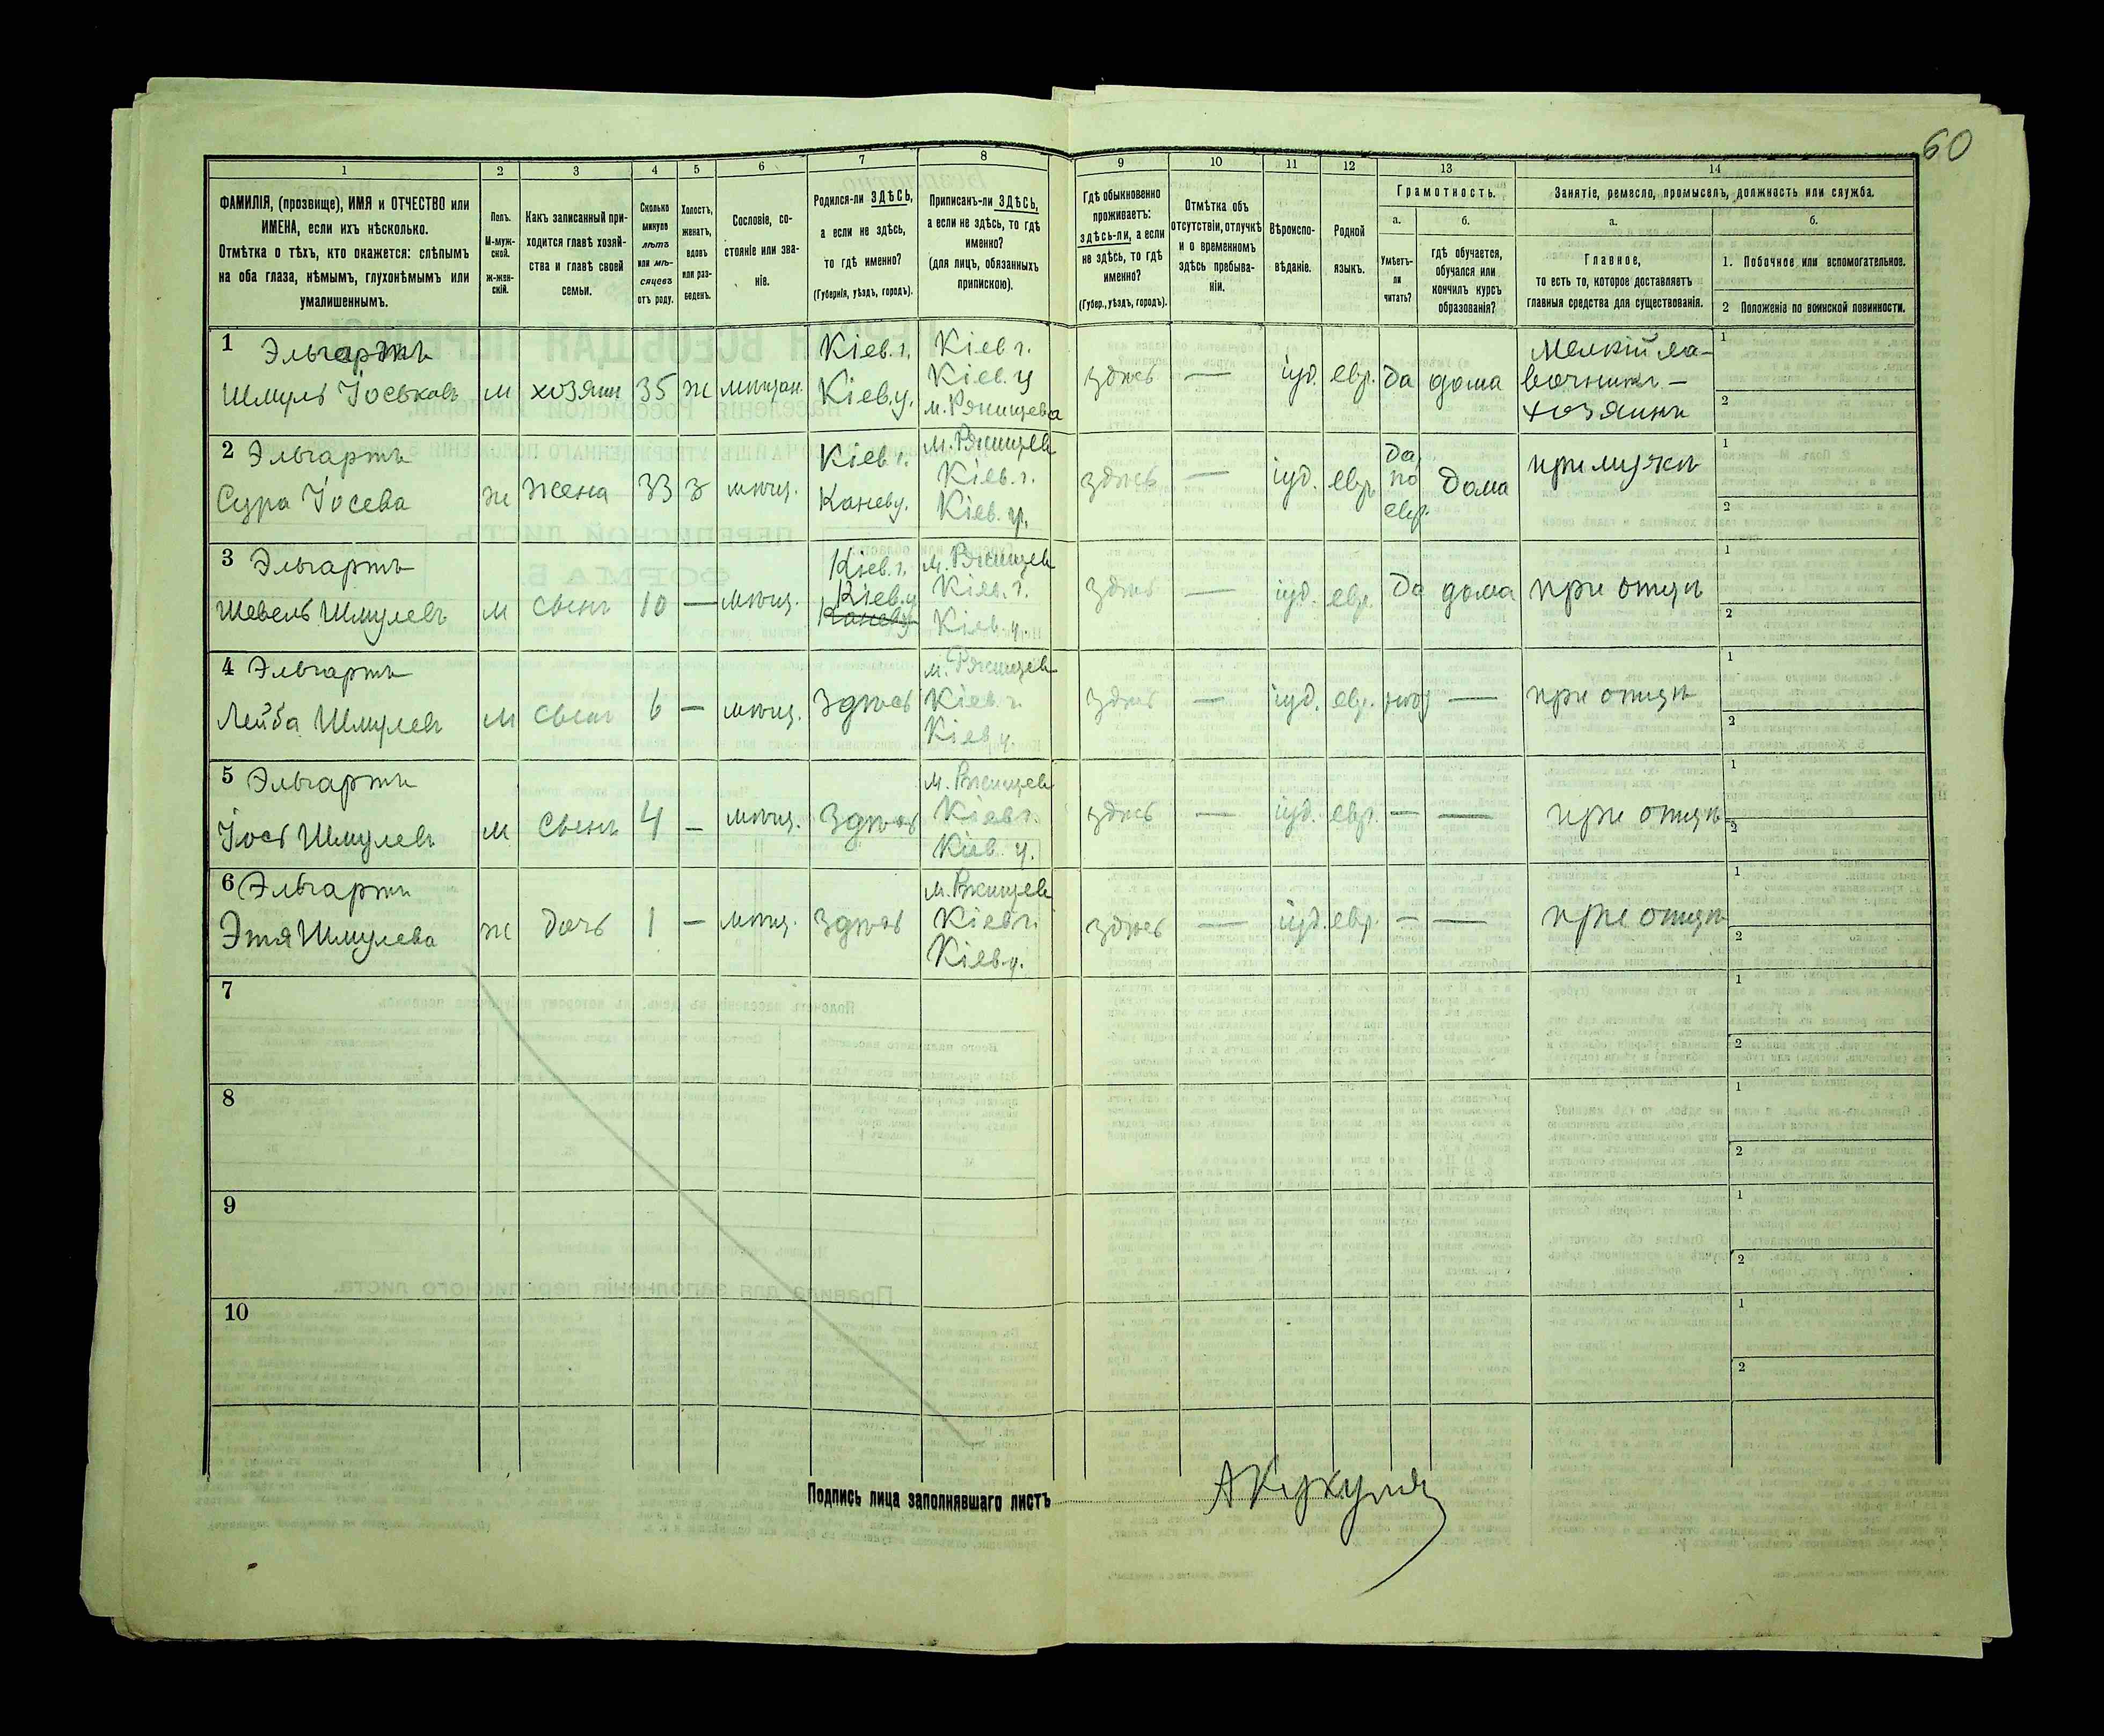 60
1 2 3 4 5 6 7 8 9 10 11 12 13 14
ФАМИЛІЯ, (прозвище), ИМЯ и ОТЧЕСТВО или
ИМЕНА, если ихъ нѣсколько.
Отмѣтка о тѣхъ, кто окажется: слѣпымъ
на оба глаза, нѣмымъ, глухонѣмымъ или
умалишеннымъ.
Полъ.
М-муж-
ской.
ж-жен-
скій.
Какъ записанный при-
ходится главѣ хозяй-
ства и главѣ своей
семьи.
Сколько
минуло
лѣтъ
или мѣ-
сяцевъ
отъ роду.
Холостъ,
женатъ,
вдовъ
или раз-
веденъ.
Сословіе, со-
стояніе или зва-
ніе.
Родился-ли ЗДѢСЬ,
а если не здѣсь,
то гдѣ именно?
(Губернія, уѣздъ, городъ).
Приписанъ-ли ЗДѢСЬ,
а если не здѣсь, то гдѣ
именно?
(для лицъ, обязанныхъ
припискою).
Гдѣ обыкновенно
проживаетъ:
здѣсь-ли, а если
не здѣсь, то гдѣ
именно?
(Губер., уѣздъ, городъ).
Отмѣтка объ
отсутствіи, отлучкѣ
и о временномъ
здѣсь пребыва-
ніи.
Вѣроиспо-
вѣданіе.
Родной
языкъ.
Грамотность.
а.
Умѣетъ-
ли
читать?
б.
гдѣ обучается,
обучался или
кончилъ курсъ
образованія?
Занятіе, ремесло, промыселъ, должность или служба.
а.
Главное,
то есть то, которое доставляетъ
главныя средства для существованія.
б.
1. Побочное или вспомогательное.
2 Положеніе по воинской повинности.
1 Эльгартъ
Шмуль Іоськовъ
м
хозяин
35
ж
мѣщан.
Кіев. г.
Кіев. у.
Кіев г.
Кіев. у
м. Ржищева
здѣсь
—
іуд.
евр.
да
дома
Мелкій ла-
вочникъ —
хозяинъ
1
2
2 Эльгартъ
Сура Іосева
ж
жена
33
з
мѣщ.
Кіев г.
Канев у.
м. Ржищев
Кіев. г.
Кіев. у.
здѣсь
—
іуд.
евр.
да
по
евр.
дома
при мужѣ
1
2
3 Эльгартъ
Шевель Шмулевъ
м
сынъ
10
—
мѣщ.
Кіев. г.
Кіев. у
Канев у
м. Ржищев
Кіев. г.
Кіев. у.
здѣсь
—
іуд.
евр.
да
дома
при отцѣ
1
2
4 Эльгартъ
Лейба Шмулевъ
м
сынъ
6
—
мѣщ.
Здѣсь
м. Ржищев
Кіев. г.
Кіев у.
здѣсь
—
іуд.
евр.
—
при отцѣ
1
2
5 Эльгартъ
Іось Шмулевъ
м
сынъ
4
—
мѣщ.
Здѣсь
м. Ржищев
Кіев г.
Кіев. у.
здѣсь
—
іуд.
евр.
—
—
при отцѣ
1
2
6 Эльгартъ
Этя Шмулева
ж
дочь
1
—
мѣщ.
Здѣсь
м. Ржищев
Кіев г.
Кіев. у.
здѣсь
—
іуд.
евр.
—
—
при отцѣ
1
2
7
1
2
8
1
2
9
1
2
10
1
2
Подпись лица заполнявшаго листъ